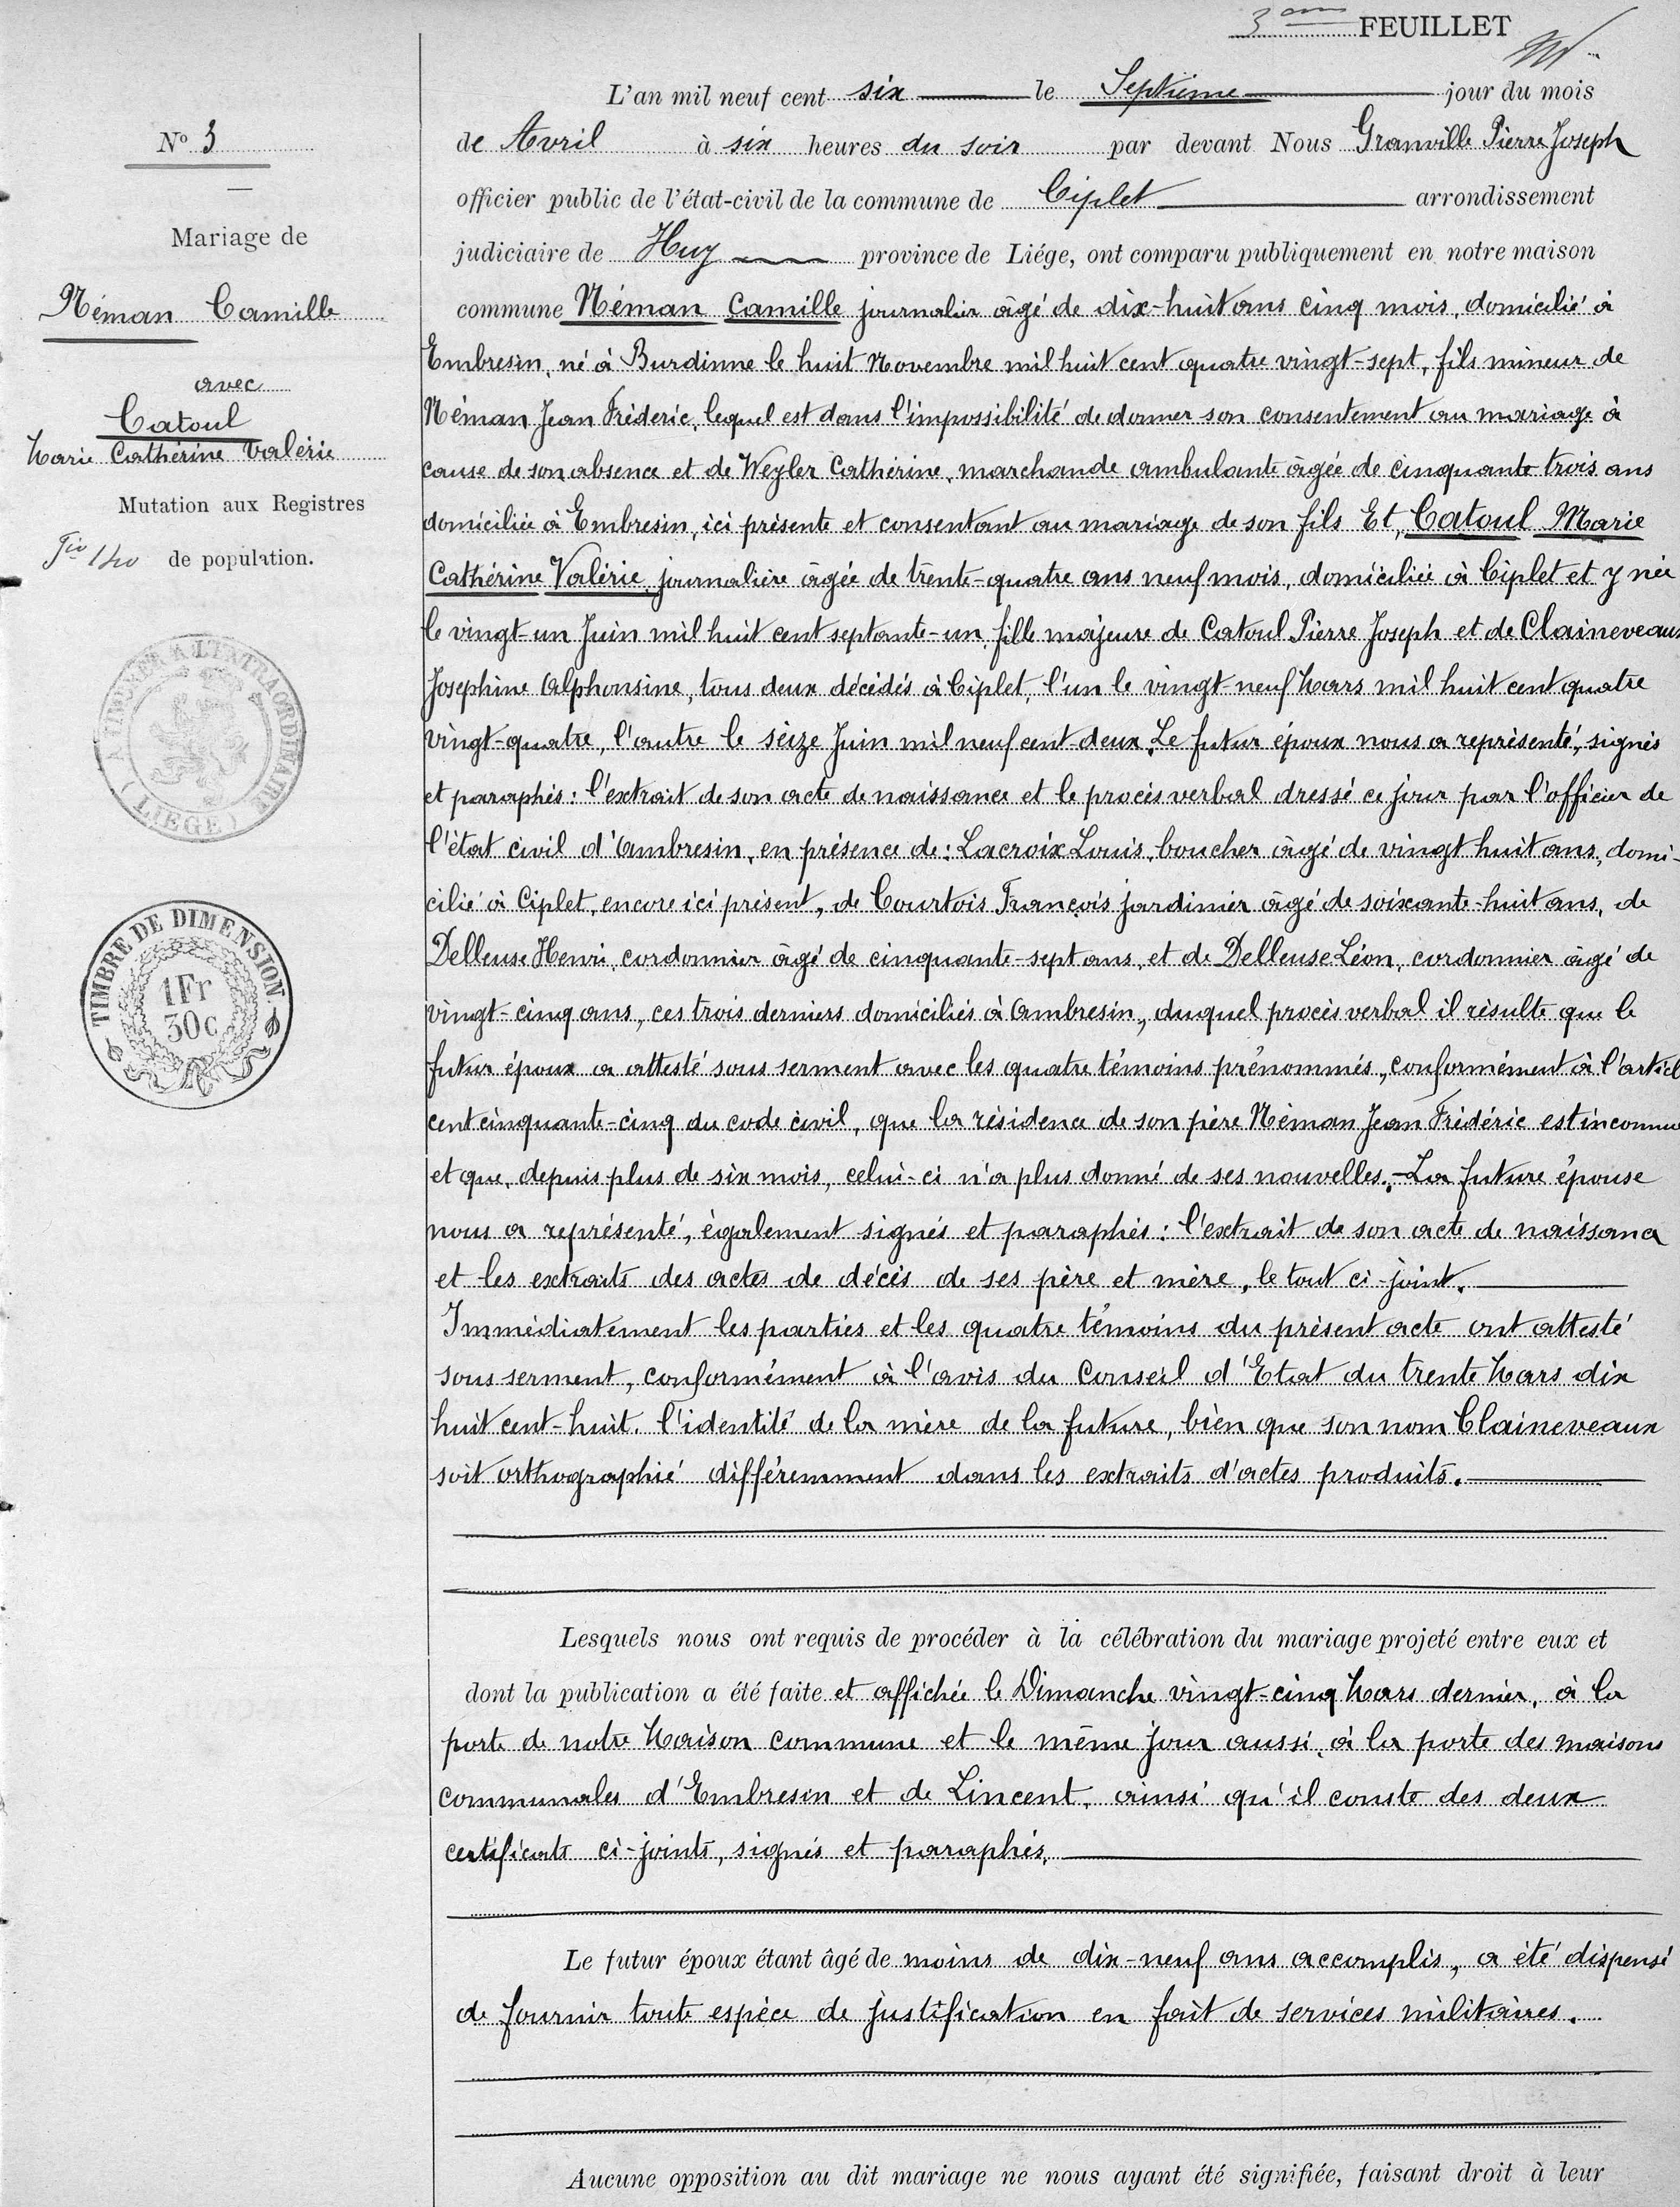 3eme FEUILLET
L'an mil neuf cent six le Septième jour du mois
de Avril à six heures du soir par devant Nous Granville Pierre Joseph
officier public de l'état-civil de la commune de Ciplet arrondissement
judiciaire de Huy province de Liége, ont comparu publiquement en notre maison
commune Néman Camille journalier âgé de dix-huit ans cinq mois, domicilié à
Embresin, né à Burdinne le huit Novembre mil huit cent quatre vingt-sept, fils mineur de
Néman Jean Fréderic, lequel est dans l'impossibilité de donner son consentement au mariage à
cause de son absence et de Weyler Cathérine, marchande ambulante âgée de cinquante trois ans
domiciliée à Embresin, ici présente et consentant au mariage de son fils Et, Catoul Marie
Cathérine Valérie, journalière âgée de trente-quatre ans neuf mois, domiciliée à Ciplet et y née
le vingt-un Juin mil huit cent septante-un, fille majeure de Catoul Pierre Joseph et de Claineveaux
Josephine Alphonsine, tous deux décédés à Ciplet, l'un le vingt-neuf Mars mil huit cent quatre
vingt-quatre, l'autre le seize Juin mil neuf cent-deux. Le futur époux nous a représenté, signés
et paraphés: l'extrait de son acte de naissance et le procès verbal dressé ce jour par l'officier de
l'état civil d'Ambresin, en présence de: Lacroix Louis, boucher âgé de vingt huit ans, domi-
cilié à Ciplet, encore ici présent, de Courtois François jardinier âgé de soixante-huit ans, de
Delleuse Henri, cordonnier âgé de cinquante-sept ans, et de Delleuse Léon, cordonnier âgé de
vingt-cinq ans, ces trois derniers domiciliés à Ambresin, duquel procès verbal il résulte que le
futur époux a attesté sous serment avec les quatre témoins prénommés, conformément à l'articl
cent cinquante-cinq du code civil, que la résidence de son père Néman Jean Frédéric est inconnue
et que, depuis plus de six mois, celui-ci n'a plus donné de ses nouvelles.-La future épouse
nous a représenté, également signés et paraphés: l'extrait de son acte de naissance
et les extraits des actes de décès de ses père et mère, le tout ci-joint.
Immédiatement les parties et les quatre témoins du présent acte ont attesté
sous serment, conformément à l'avis du Conseil d'Etat du trente Mars dix
huit cent-huit, l'identité de la mère de la future, bien que son nom Claineveaux
soit orthographié différemment dans les extraits d'actes produits.
Lesquels nous ont requis de procéder à la célébration du mariage projeté entre eux et
dont la publication a été faite et affichée le Dimanche vingt-cinq Mars dernier, à la
porte de notre Maison commune et le même jour aussi, à la porte des maisons
communales d'Embresin et de Lincent, ainsi qu'il conste des deux
certificats ci-joints, signés et paraphés.
Le futur époux étant âgé de moins de dix-neuf ans accomplis, a été dispensé
de fournir toute espèce de justification en fait de services militaires.
Aucune opposition au dit mariage ne nous ayant été signifiée, faisant droit à leur
No 3
Mariage de
Néman Camille
avec
Catoul
Marie Cathérine Valérie
Mutation aux Registres
Fio 140 de population.
A TIMBRER A L'EXTRAORDINAIRE
(LIEGE)
TIMBRE DE DIMENSION.
1 Fr
30c